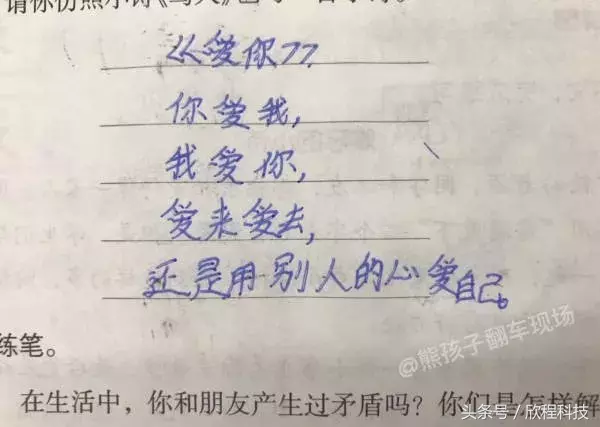 请你仿照小诗《骂人》也写一首小诗。
《爱你》
你爱我，
我爱你，
爱来爱去，
还是用别人的心爱自己。
@熊孩子翻车现场
练笔。
在生活中，你和朋友产生过矛盾吗？你们是怎样解
头条号 / 欣程科技